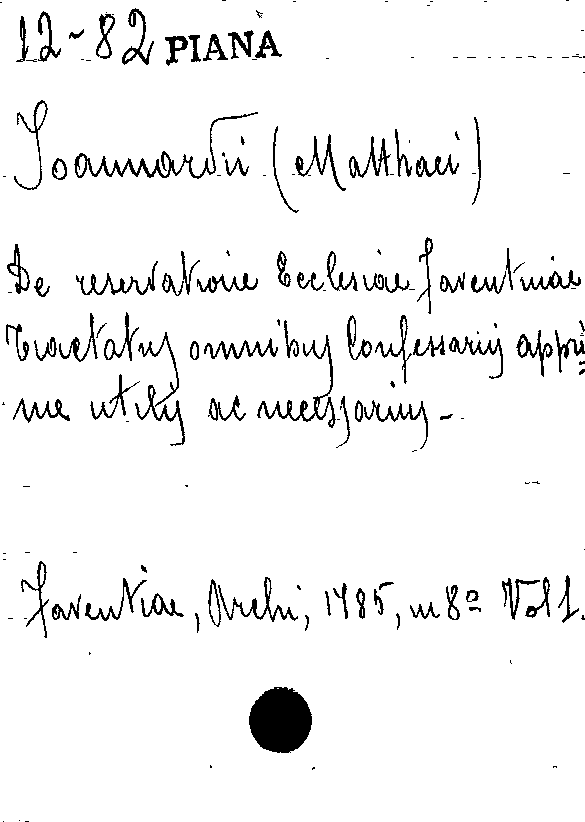 12-82 PIANA
Joannardii (Matthaei)
De reservatione Ecclesiae Faventinae
Tractatus omnibus Confessariis appri=
me utilis ac necessarius-
Faventiae, Archi, 1785, in 8º Vol 1.